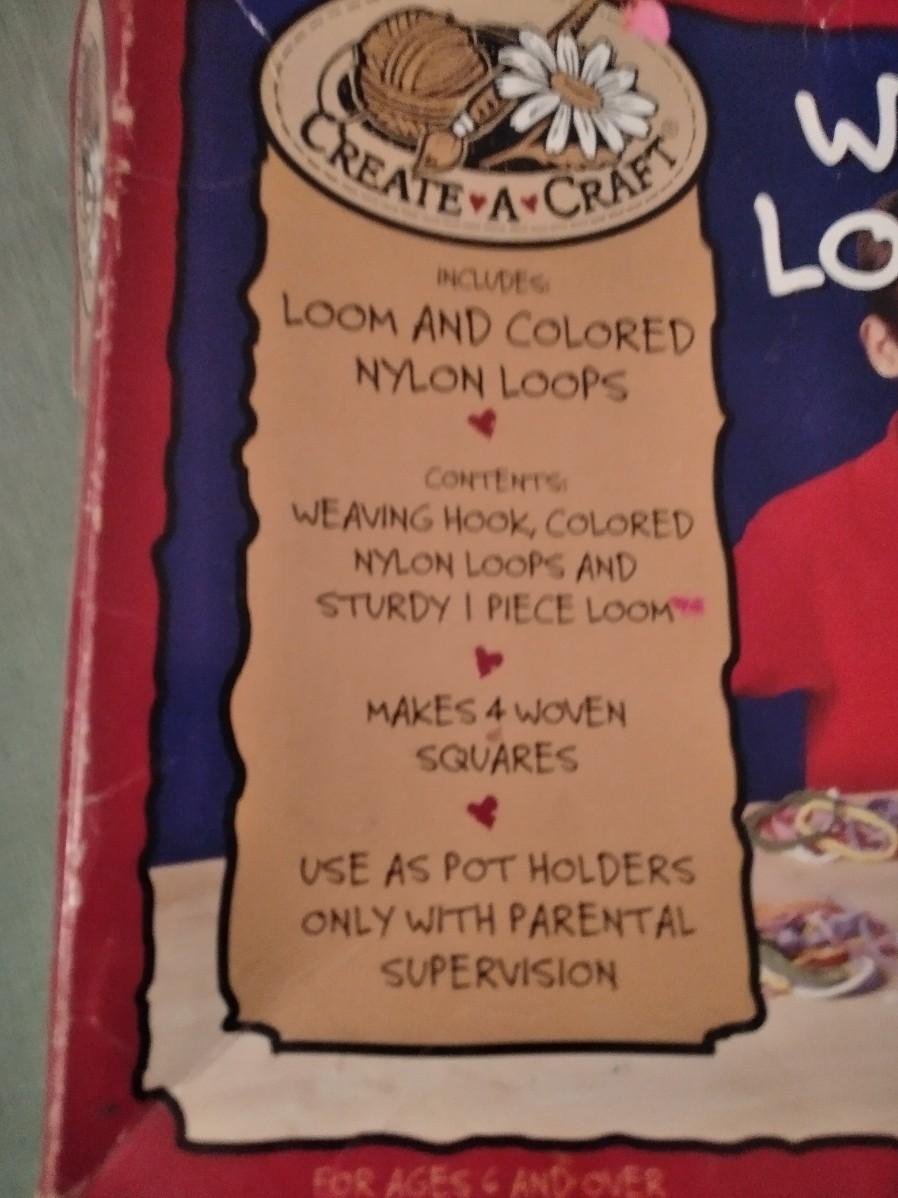 CREATE♥A♥CRAFT®
W
LO
INCLUDES:
LOOM AND COLORED
NYLON LOOPS
CONTENTS:
WEAVING HOOK, COLORED
NYLON LOOPS AND
STURDY 1 PIECE LOOM
MAKES 4 WOVEN
SQUARES
USE AS POT HOLDERS
ONLY WITH PARENTAL
SUPERVISION
FOR AGES 6 AND OVER